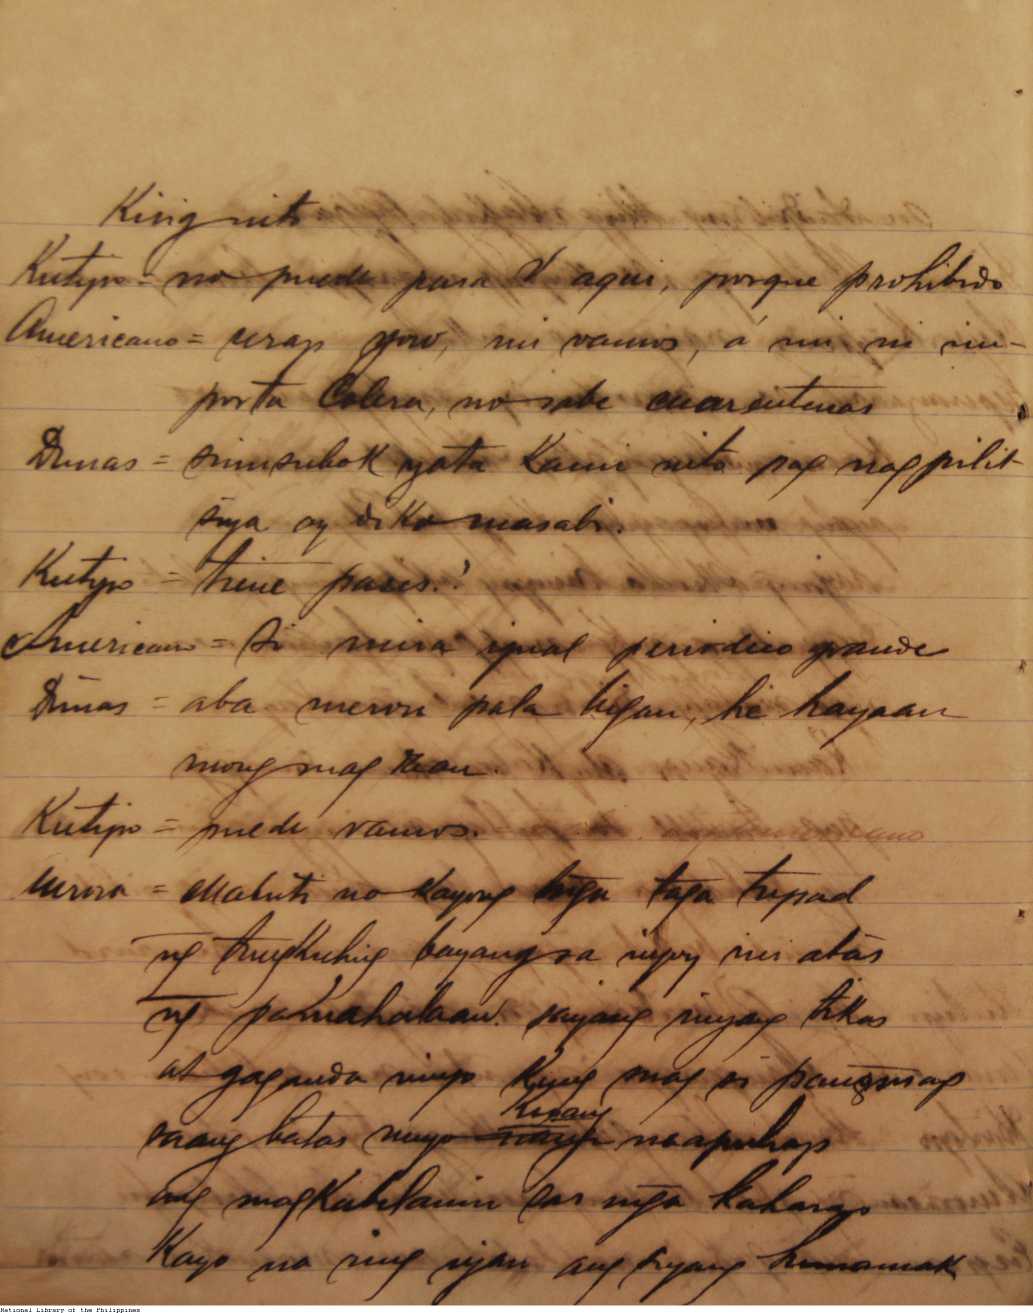 King nito
Kutyo = no puede pasa V aqui, porque prohibido
Americano = usap yow, mi vamos, á mi, ni im-
porta Colera, no sabe cuarentenas
Dimas = sinusubok yata Kami nito pag nagpilit
siya ay di Ko masabi.
Kutyo = tiene pases?
Americano = Si mira igual periodico grande
Dimas = aba meron pala bigan, he hayaan
mong mag daan.
Kutyo = puede vamos.
= Mabuti na Kayong mga taga tupad
ng tungkuling bayang sa inyoy ini atas
ng pamahalaan. sayang inyang tikas
at gaganda ninyo Kung mag si
saang batas ninyo Kusang
ang mag mga
Kayo na ring iyan ang siyang
National Library of the Philippines